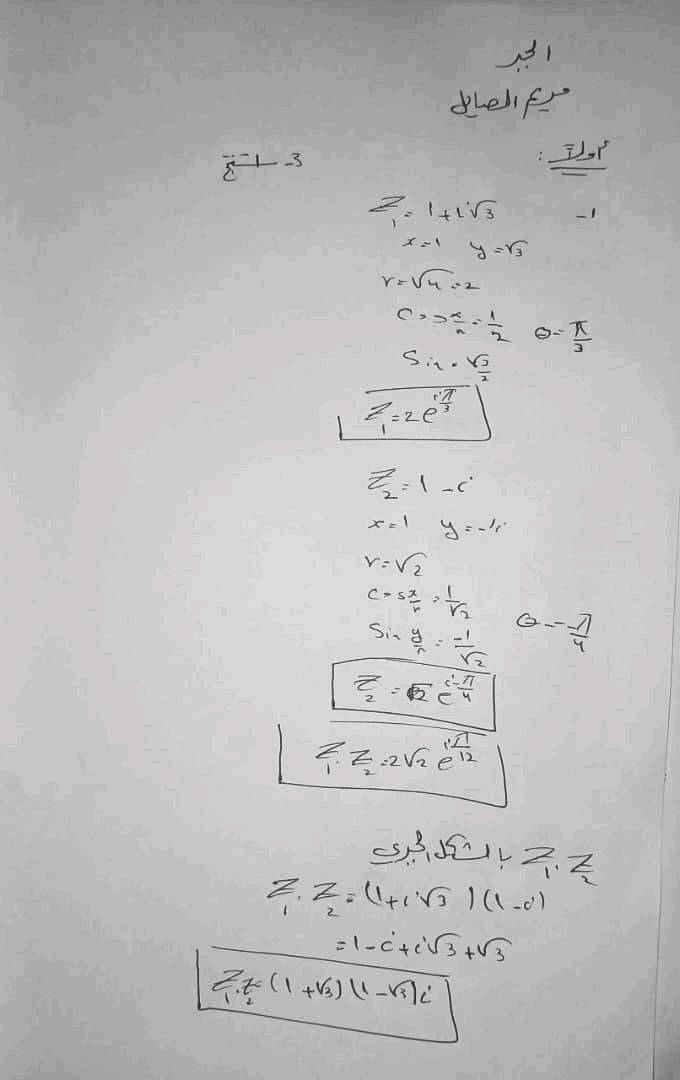 الجبر
مريم الصايل
أولاً :
3- استنتج
1- Z₁ = 1 + i√3
x = 1 y = √3
r = √4 = 2
Cos x/r = 1/2 θ = π/3
Sin = √3/2
Z₁ = 2 e^(iπ/3)
Z₂ = 1 - i
x = 1 y = -1i
r = √2
Cos x/r = 1/√2
Sin y/r = -1/√2 θ = -π/4
Z₂ = √2 e^(i-π/4)
Z₁ . Z₂ = 2√2 e^(iπ/12)
Z₁ . Z₂ بالشكل الجبري
Z₁ . Z₂ = (1 + i√3)(1 - i)
= 1 - i + i√3 + √3
Z₁ . Z₂ = (1 + √3)(1 - √3)i